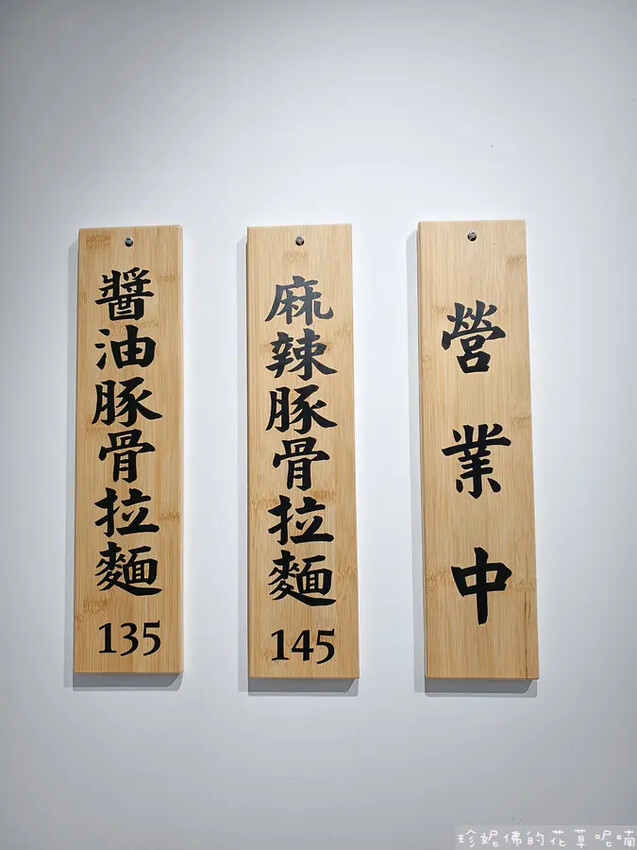 營業中
麻辣豚骨拉麵
145
醬油豚骨拉麵
135
珍妮佛的花草呢喃